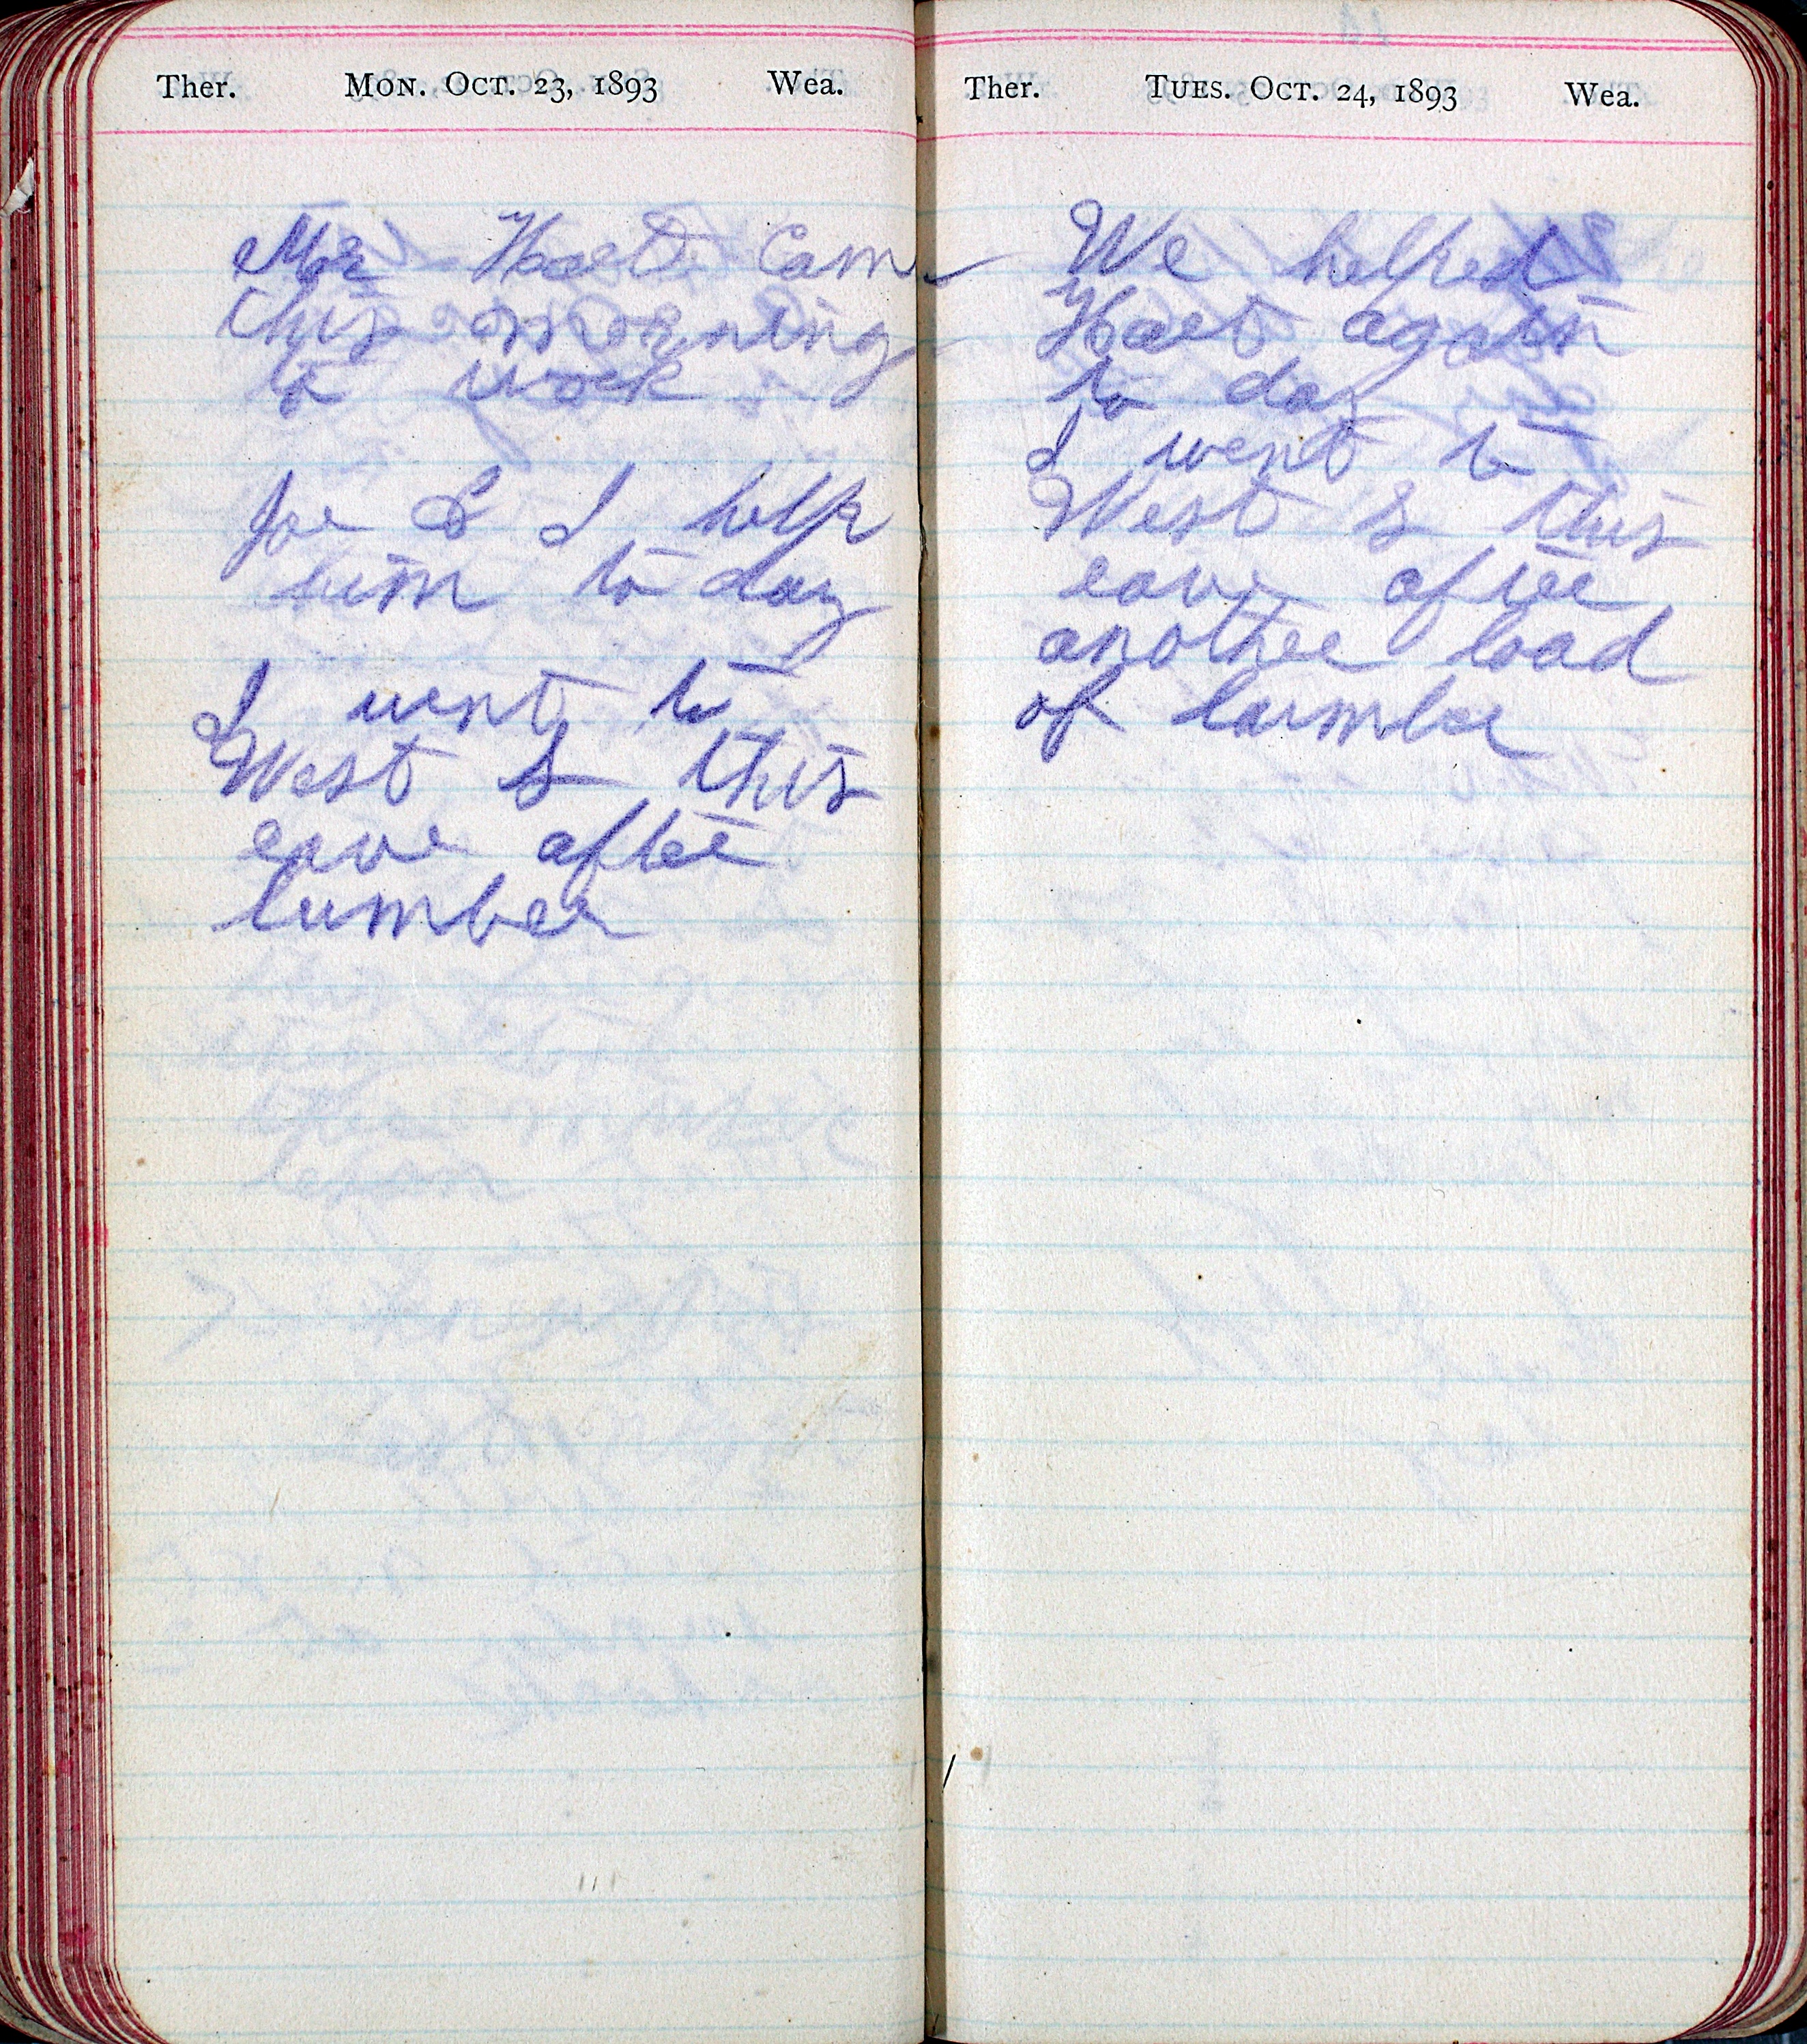 Ther. Mon. Oct. 23, 1893 Wea.
Mr Hart Came
this morning
to work
Joe & I help
him to day
I went to
West S this
eave after
lumber
Ther. Tues. Oct. 24, 1893 Wea.
We helped
Hart again
to day
I went to
West S this
eave after
another load
of lumber